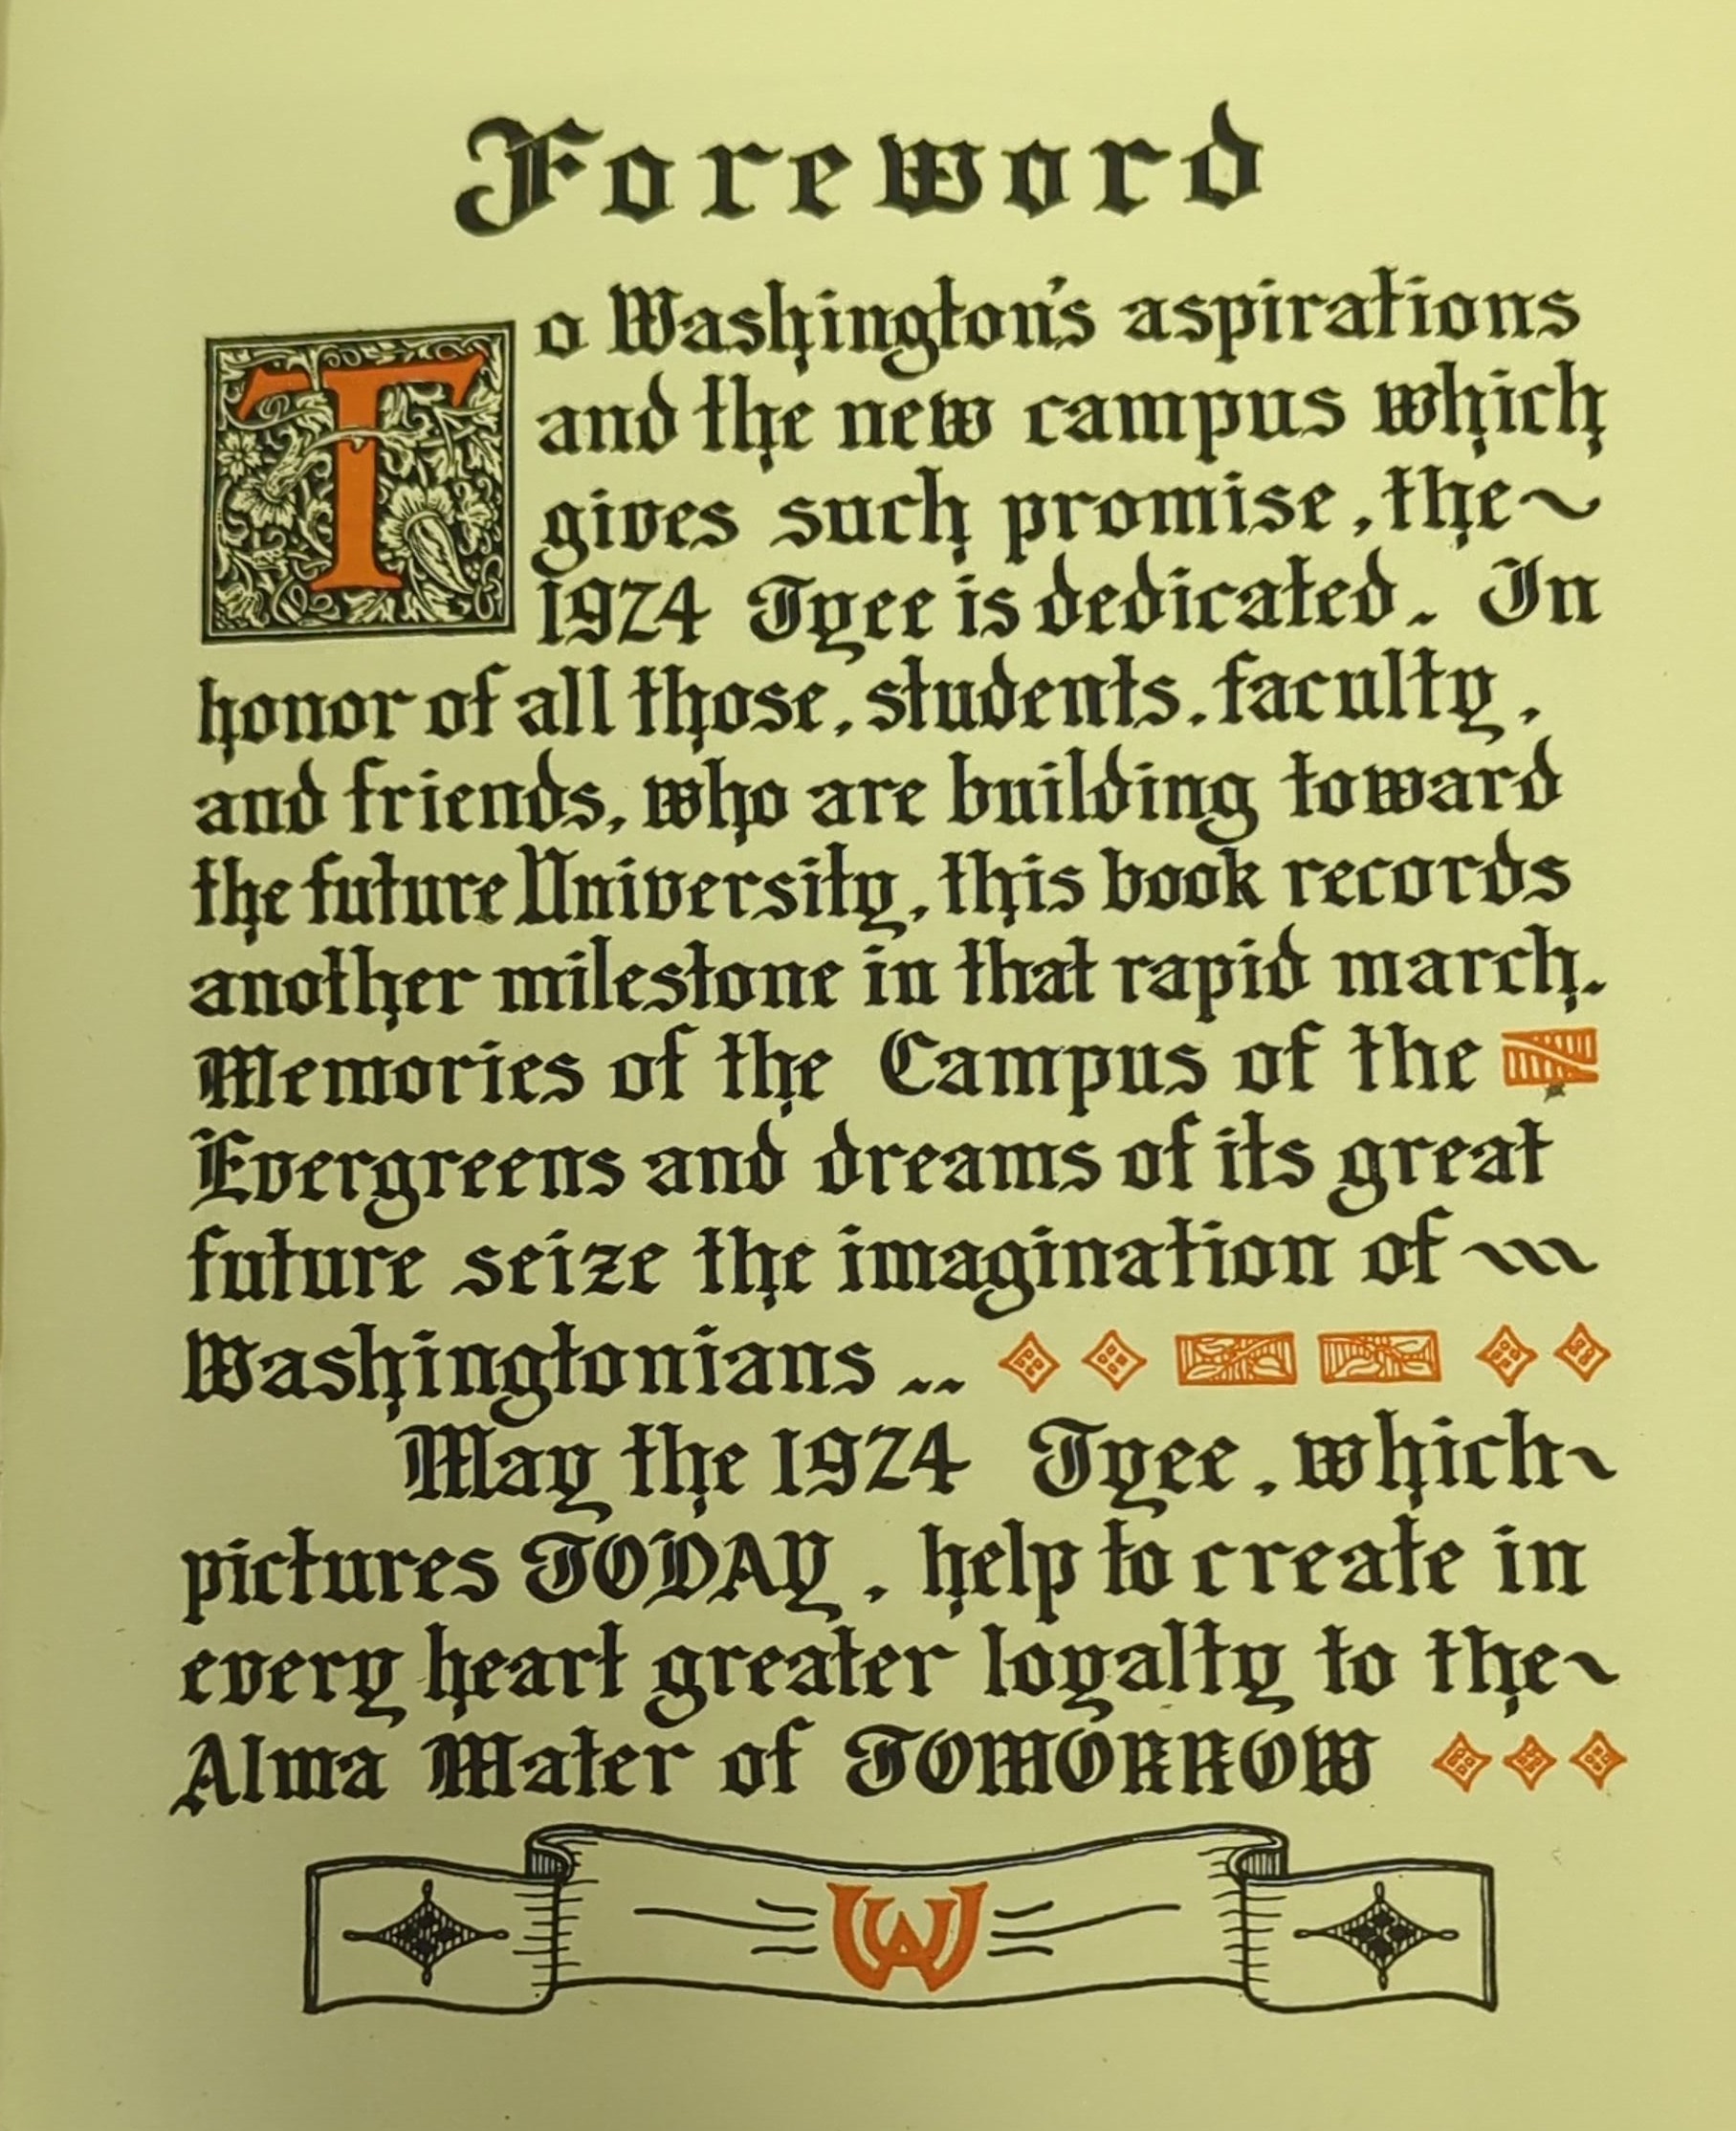 Foreword
To Washington's aspirations
and the new campus which
gives such promise, the~
1924 Tyee is dedicated. In
honor of all those, students, faculty,
and friends, who are building toward
the future University, this book records
another milestone in that rapid march.
Memories of the Campus of the
Evergreens and dreams of its great
future seize the imagination of
Washingtonians ..
May the 1924 Tyee, which~
pictures TODAY, help to create in
every heart greater loyalty to the~
Alma Mater of TOMORROW
W